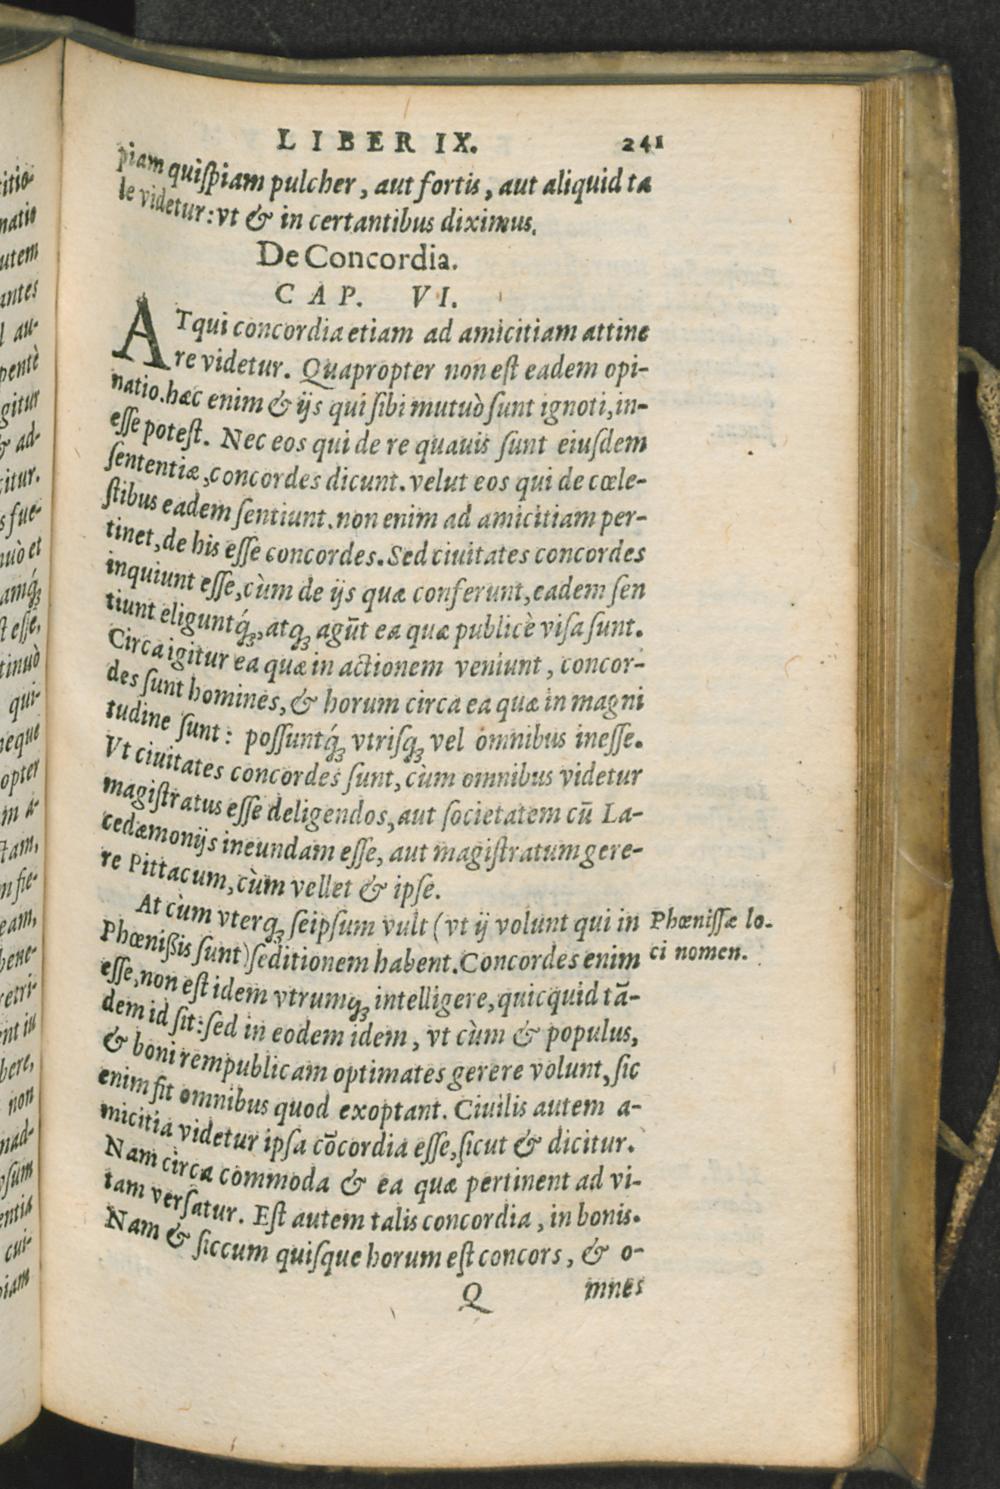 LIBER IX. 241
piam quiſpiam pulcher, aut fortis, aut aliquid ta
le videtur: vt & in certantibus diximus.
De Concordia.
CAP. VI.
ATqui concordia etiam ad amicitiam attine
re videtur. Quapropter non eſt eadem opi-
natio. hæc enim & ijs qui ſibi mutuò ſunt ignoti, in-
eſſe poteſt. Nec eos qui de re quauis ſunt eiuſdem
ſententiæ, concordes dicunt. velut eos qui de cœle-
ſtibus eadem ſentiunt. non enim ad amicitiam per-
tinet, de his eſſe concordes. Sed ciuitates concordes
inquiunt eſſe, cùm de ijs quæ conferunt, eadem ſen
tiunt eliguntq́;, atq; agūt ea quæ publicè viſa ſunt.
Circa igitur ea quæ in actionem veniunt, concor-
des ſunt homines, & horum circa ea quæ in magni
tudine ſunt: poſſuntq́; vtriſq; vel omnibus ineſſe.
Vt ciuitates concordes ſunt, cùm omnibus videtur
magiſtratus eſſe deligendos, aut ſocietatem cū La-
cedæmonijs ineundam eſſe, aut magiſtratum gere-
re Pittacum, cùm vellet & ipſe.
At cùm vterq; ſeipſum vult (vt ij volunt qui in
Phœnißis ſunt) ſeditionem habent. Concordes enim
eſſe, non eſt idem vtrumq; intelligere, quicquid tā-
dem id ſit: ſed in eodem idem, vt cùm & populus,
& boni rempublicam optimates gerere volunt, ſic
enim fit omnibus quod exoptant. Ciuilis autem a-
micitia videtur ipſa cōcordia eſſe, ſicut & dicitur.
Nam circa commoda & ea quæ pertinent ad vi-
tam verſatur. Eſt autem talis concordia, in bonis.
Nam & ſiccum quiſque horum eſt concors, & o-
Q mnes
Phœniſſæ lo-
ci nomen.